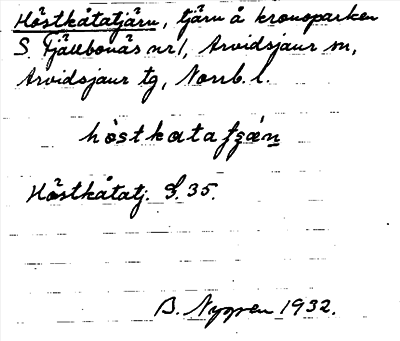 Höstkåtatjärn, tjärn å kronoparken
S. Fjällbonäs nr 1, Arvidsjaur sn,
Arvidsjaur tg, Norrb. l.
Höstkåtatj. S. 35.
B. Nygren 1932.